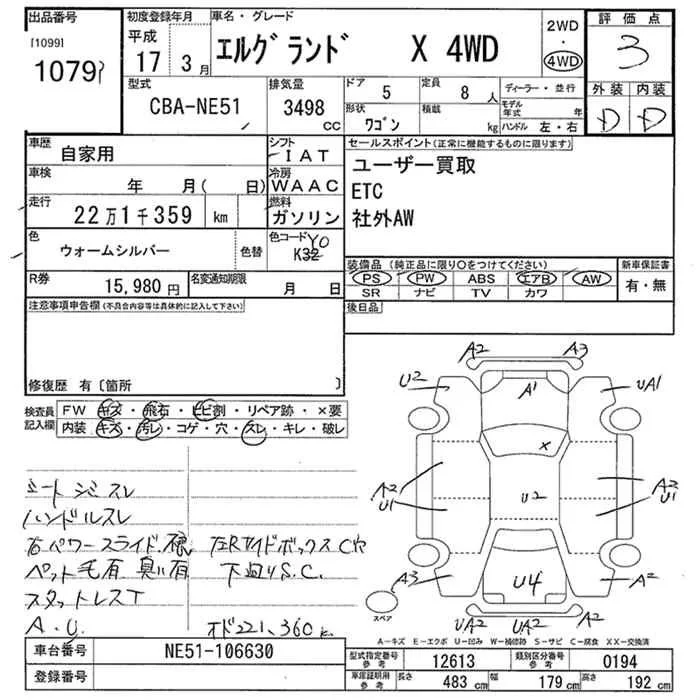 出品番号
[1099]
1079
初度登録年月
平成
17 3月
車名・グレード
エルグランド X 4WD
2WD
・
4WD
評価点
3
外装 内装
D D
型式
CBA-NE51
排気量
3498
CC
ドア
5
定員
8 人
形状
ワゴン
積載
kg
ディーラー・並行
モデル年式 年
ハンドル 左・右
車歴
自家用
シフト
IAT
車検
年 月( 日)
冷房
WAAC
走行
22万1千359 km
燃料
ガソリン
色
ウォームシルバー
色替
色コード
YO
K32
R券
15,980円
名変通知期限
月 日
セールスポイント(正常に機能するものに限ります)
ユーザー買取
ETC
社外AW
装備品 (純正品に限り○をつけてください)
PS PW ABS エアB AW
SR ナビ TV カワ
新車保証書
有・無
注意事項申告欄(不具合内容等は具体的に記入して下さい)
後日品
修復歴 有〔箇所 〕
検査員記入欄
FW キズ・飛石・ヒビ割・リペア跡・×要
内装 キズ・汚レ・コゲ・穴・スレ・キレ・破レ
シートシミスレ
ハンドルスレ
右パワースライド
ペット毛有 臭い有
スタットレスT
A.U.
左Rサイドボックス C穴
下回りS.C.
オド221,360k
A2 A3
U2 A1 UA1
×
A2
U1
U2
A2
U1
A3 U4 A2
UA2 UA2 A2
スペア
A-キズ E-エクボ U-凹み W-補修跡 S-サビ C-腐食 XX-交換済
車台番号
NE51-106630
登録番号
型式指定番号
参考
12613
類別区分番号
参考
0194
車庫証明用
参考
長さ 483 cm
幅 179 cm
高さ 192 cm